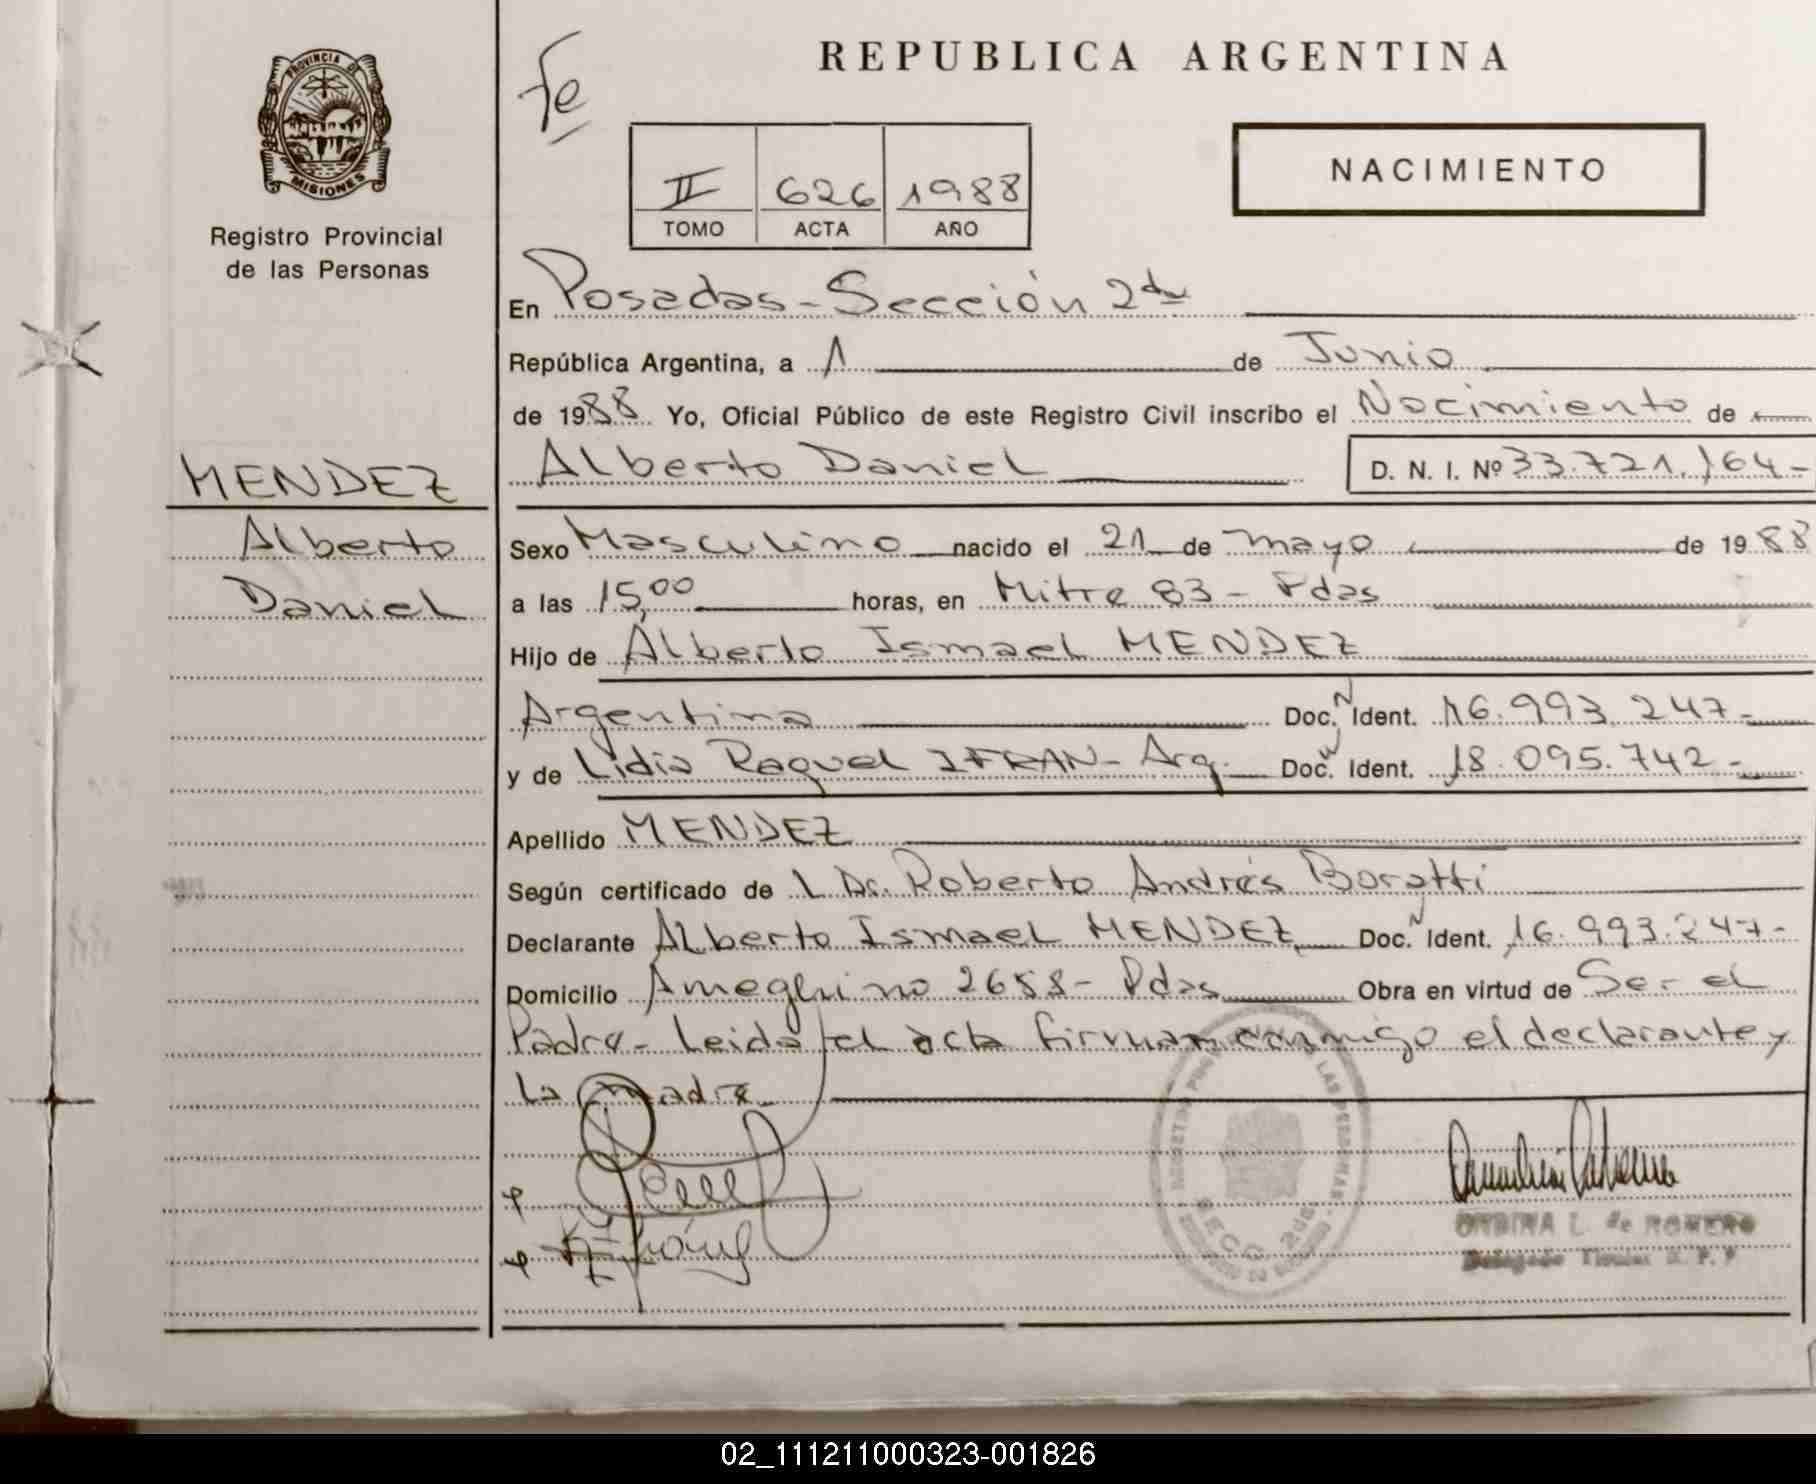 PROVINCIA DE
MISIONES
Registro Provincial
de las Personas
MENDEZ
Alberto
Daniel
Fe
REPUBLICA ARGENTINA
II 626 1988
TOMO ACTA AÑO
NACIMIENTO
En Posadas - Sección 2da
República Argentina, a 1 de Junio
de 1988 Yo, Oficial Público de este Registro Civil inscribo el Nacimiento de
Alberto Daniel D. N. I. Nº 33.721.164-
Sexo Masculino nacido el 21 de mayo de 1988
a las 15,00 horas, en Mitre 83 - Pdas
Hijo de Alberto Ismael MENDEZ
Argentina Doc. N Ident. 16.993.247-
y de Lidia Raquel IFRAN - Arg. Doc. N Ident. 18.095.742-
Apellido MENDEZ
Según certificado de L Dr. Roberto Andrés Boratti
Declarante Alberto Ismael MENDEZ Doc. N Ident. 16.993.247-
Domicilio Ameghino 2658 - Pdas Obra en virtud de Ser el
Padre - Leida el acta firman conmigo el declarante y
La madre
LAS PERSONAS
SECC. 2da
ONDINA L. de ROMERO
Delegado Titular R. P. P
02_111211000323-001826